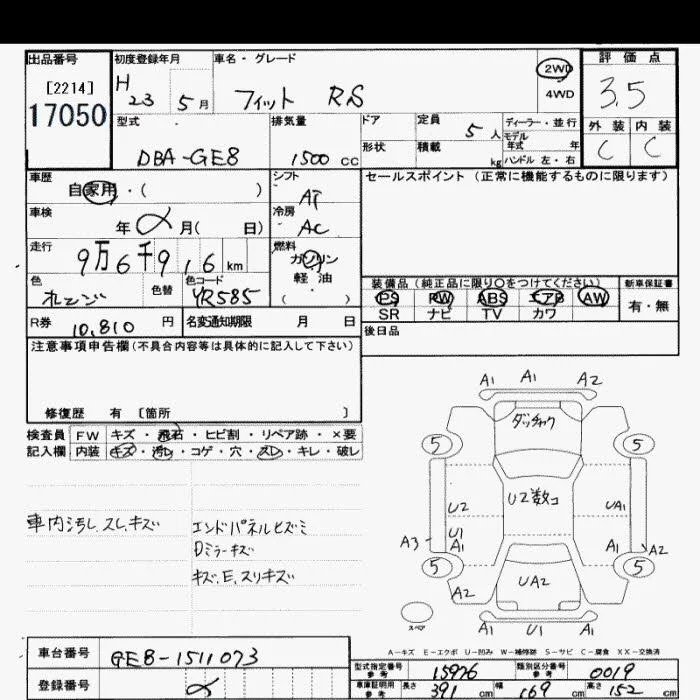 出品番号
[2214]
17050
初度登録年月
H 23 5月
車名・グレード
フィット RS
2WD
4WD
評価点
3.5
外装 内装
C C
型式
DBA-GE8
排気量
1500 cc
ドア
形状
定員 5人
積載 kg
ディーラー・並行
モデル年式 年
ハンドル 左・右
車歴
自家用・( )
車検
年 月( 日)
走行
9万6千916 km
色
オレンジ
色替
色コード
YR585
シフト
AT
冷房
AC
燃料
ガソリン
軽油
( )
セールスポイント (正常に機能するものに限ります)
装備品 (純正品に限り○をつけてください)
PS PW ABS エアB AW
SR ナビ TV カワ
新車保証書
有・無
後日品
R券 10,810 円
名変通知期限 月 日
注意事項申告欄(不具合内容等は具体的に記入して下さい)
修復歴 有 [箇所 ]
検査員 FW キズ・飛石・ヒビ割・リペア跡・×要
記入欄 内装 キズ・汚レ・コゲ・穴・スレ・キレ・破レ
車内汚レ、スレ、キズ
エンドパネルヒズミ
Dミラーキズ
キズ、E、スリキズ
A1 A1 A2
ダッチャク
5 5
U2 U2数コ UA1
U1
A3 A1 A1 A2
5 5
A2 UA2
スペア
A1 U1 A1
A-キズ E-エクボ U-凹み W-補修跡 S-サビ C-腐食 XX-交換済
車台番号
GE8-1511073
登録番号
型式指定番号 参考 15976
類別区分番号 参考 0019
車庫証明用 参考 長さ 391 cm 幅 169 cm 高さ 152 cm